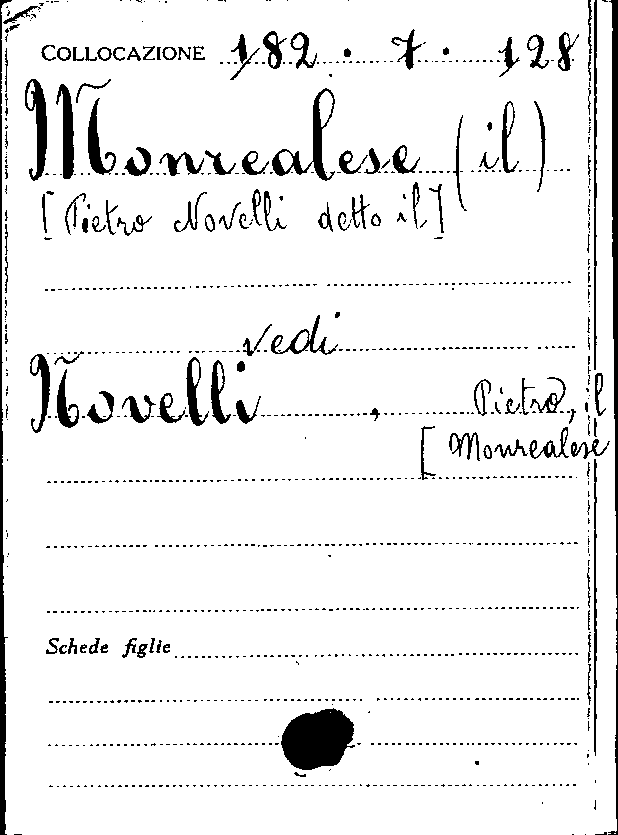 COLLOCAZIONE 182 . 7 . 128
Monrealese (il)
[Pietro Novelli detto il]
vedi
Novelli , Pietro, il
[Monrealese
Schede figlie